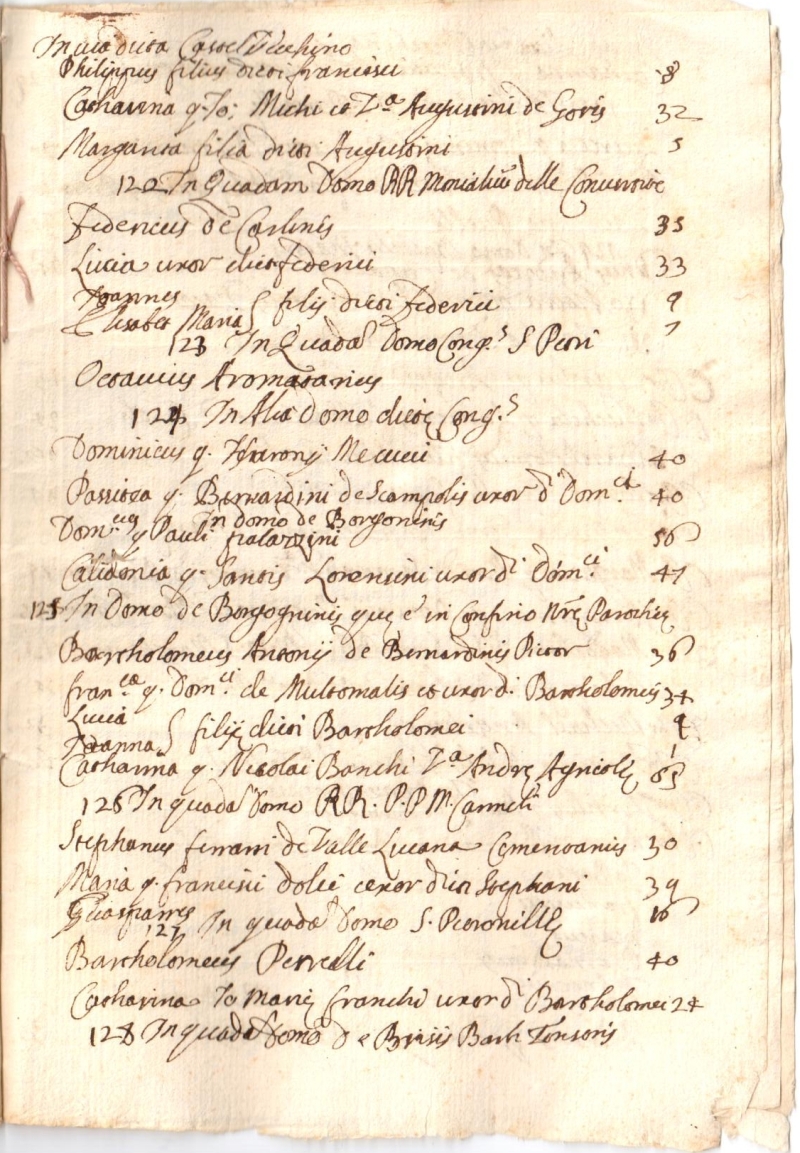 In via dicta Castel Vecchino
Philippus filius dicti francisci 8
Catharina q. Jo: Michi et Va Augustini de Goris 32
Margarita filia dicti Augustini 5
122 In Quadam Domo RR Monialiū delle Convertite
Federicus de Carlinis 35
Lucia uxor dicti Federici 33
Joannes 9
Elisabet Maria } filij dicti Federici 7
123 In Quadā Domo Cong.s S Petri
Octavius Aromatarius
124 In Alia Domo dictę Cong.s
Dominicus q. Hieronij Mecucci 40
Passitea q. Bernardini de Scampolis uxor dⁱ Dom.ci 40
In domo de Borgoninis
Dom.cus q Pauli Palazzini 56
Calidonia q. Santis Lorensini uxor dⁱ Dom.ci 47
125 In Domo de Borgogninis quę è in Confinio Nrę Parochię
Bartholomeus Antonij de Bernardinis Pictor 36
Fran.ca q. Dom.ci de Multomalis et uxor d. Bartholomeij 34
Lucia 4
Joanna } filię dicti Bartholomei 1
Catharina q. Nicolai Banchi Va Andrę Agricolę 65
126 In quadā Domo RR. P.P M. Carmeli
Stephanus ferrarri de Valle Lucana Cementarius 30
Maria q. francisci dolci uxor dicti Stephani 39
Guasparres 16
127 In quadā Domo S. Petronillę
Bartholomeus Petrelli 40
Catharina Jo Marię franchi uxor dⁱ Bartholomei 24
128 In quadā Domo de Brisiis Barh Tonsoris